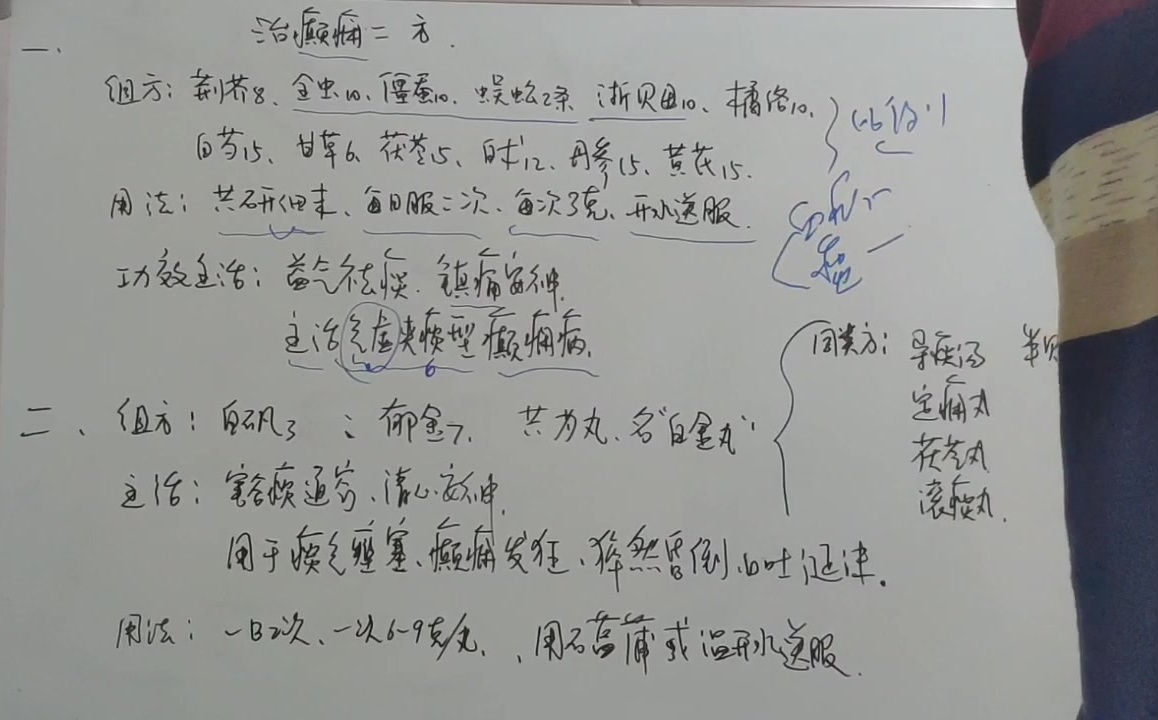 治癫痫二方.
一、
组方：荆芥8、全虫10、僵蚕10、蜈蚣2条、浙贝母10、橘络10、
白芍15、甘草6、茯苓15、白术12、丹参15、黄芪15.
用法：共研细末、每日服二次、每次3克、开水送服.
功效主治：益气祛痰、镇痛安神.
主治气虚夹痰型癫痫病.
同类方：导痰汤
定痫丸
茯苓丸
滚痰丸.
二、组方：白矾3、郁金7、共为丸、名“白金丸”
主治：豁痰通窍、清心安神.
用于痰气壅塞、癫痫发狂、猝然昏倒、口吐涎沫.
用法：一日2次、一次6-9克/丸、用石菖蒲或温开水送服.